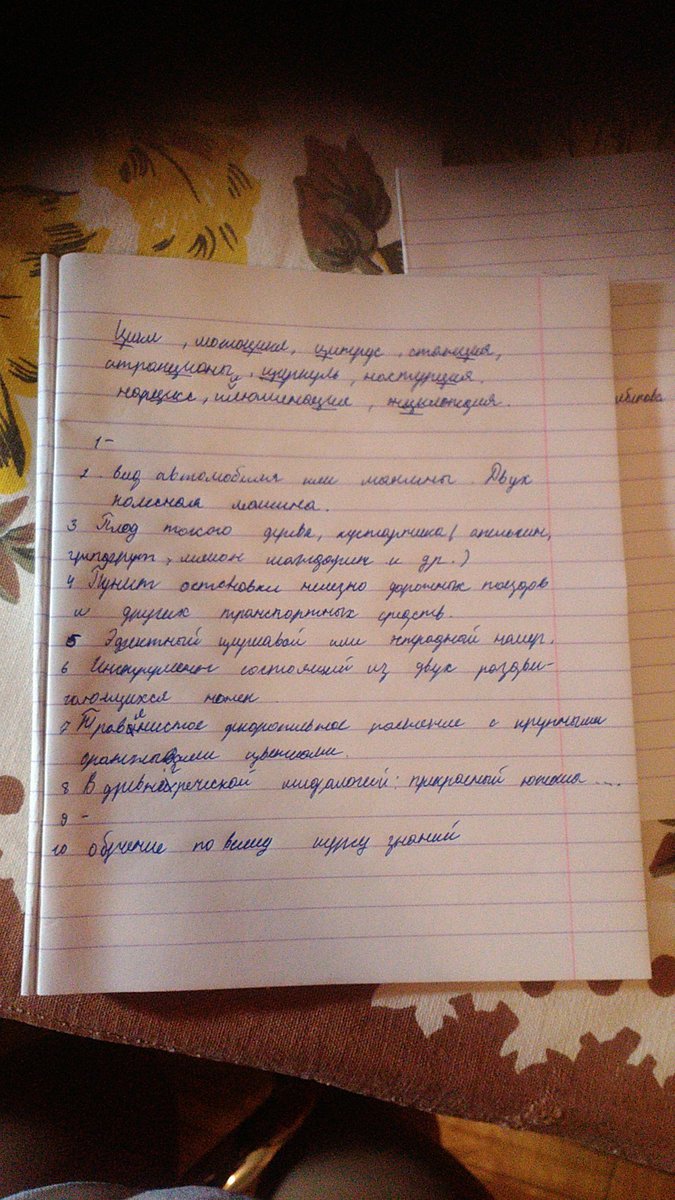 Цирк, мотоцикл, цитрус, станция,
аттракционы, циркуль, настурция,
нарцисс, иллюминация, энциклопедия.
1 -
2. вид автомобиля или машины. Двух
колесная машина.
3 Плод такого дерева, кустарника (апельсин,
грейпфрут, лимон мандарин и др.)
4 Пункт остановки железно дорожных поездов
и других транспортных средств.
5 Эфектный цирковой или эстрадной номер.
6 Инструмент состоящий из двух раздви-
гающихся ножек
7 Травянистое декоротивное растение с крупными
оранжывыми цветками.
8 В древнегреческой мифалогей: прекрасный юноша ....
9 -
10 обучение по всему курсу знаний